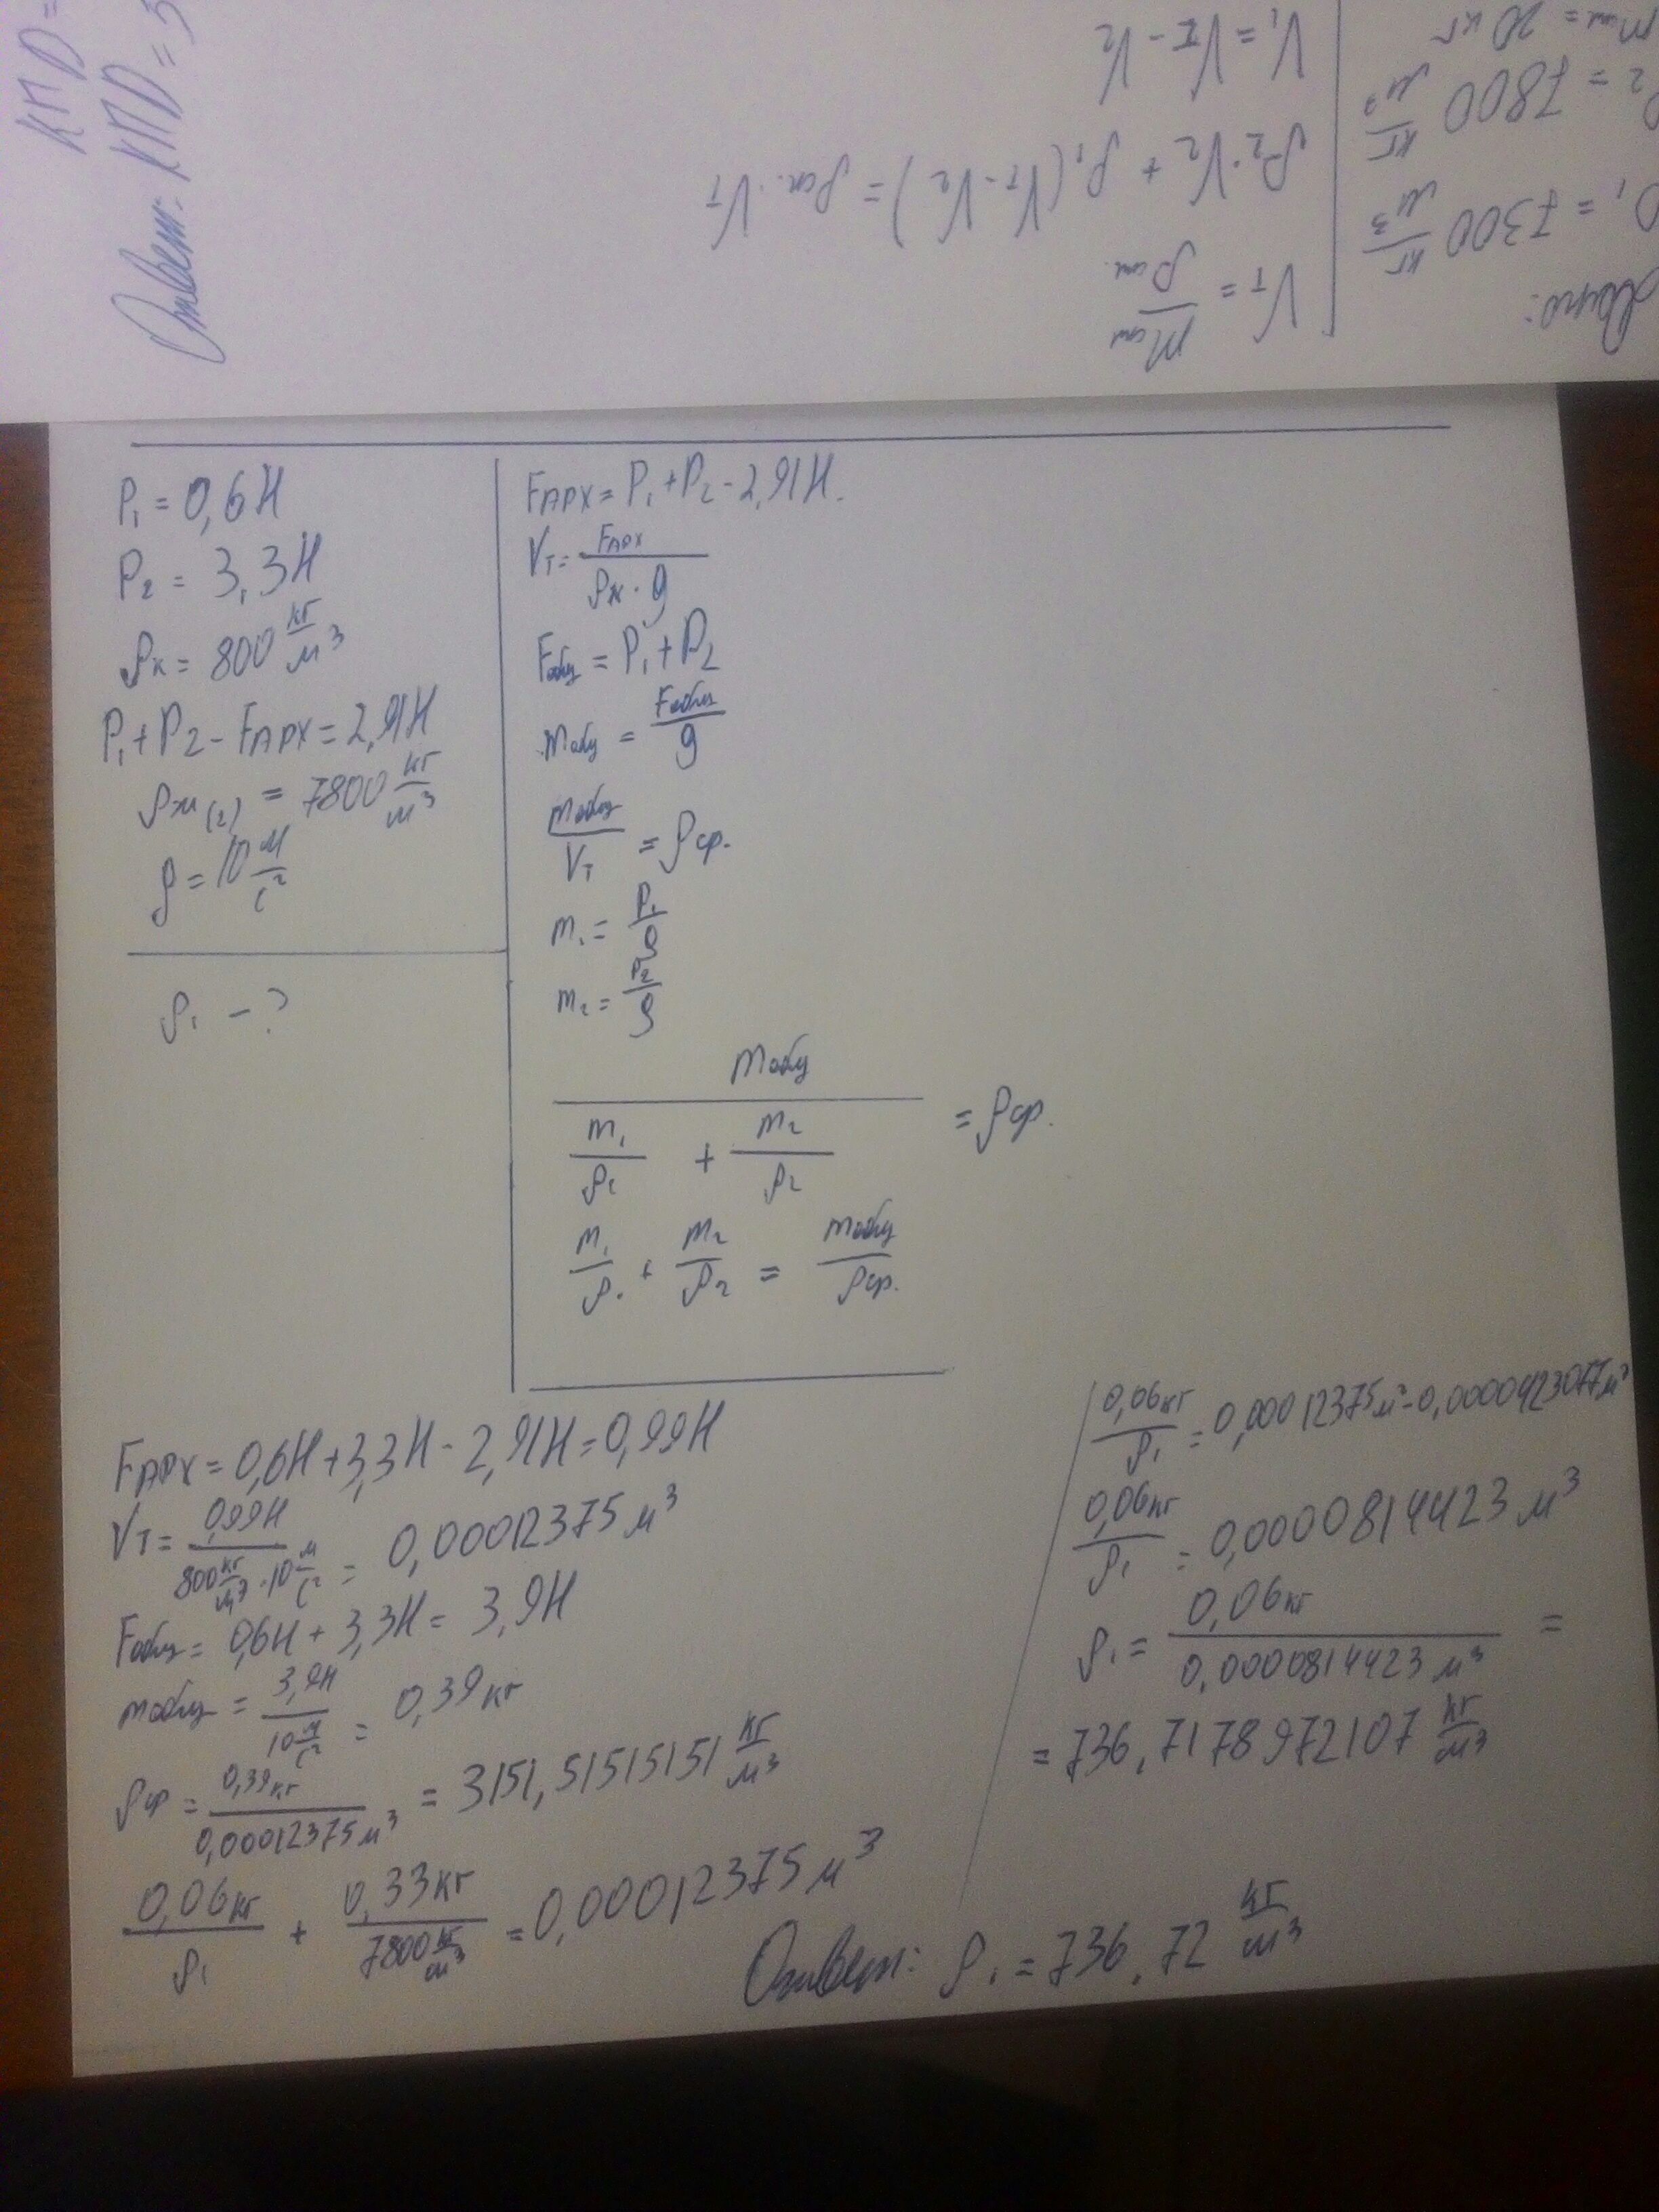 КПД =
Ответ: КПД = 3
Дано:
ρ₁ = 7300 кг/м³
ρ₂ = 7800 кг/м³
= 20 кг
Vт = mсп/ρсп.
ρ₂·V₂ + ρ₁(Vт - V₂) = ρсп.·Vт
V₁ = VΣ - V₂
P₁ = 0,6Н
P₂ = 3,3Н
ρк = 800 кг/м³
P₁+P₂ - FАРХ = 2,91Н
ρж(2) = 7800 кг/м³
g = 10 м/с²
ρ₁ - ?
FАРХ = P₁+P₂ - 2,91Н.
Vт = FАРХ/ρж·g
Fобщ = P₁+P₂
mобщ = Fобщ/g
mобщ/Vт = ρср.
m₁ = P₁/g
m₂ = P₂/g
mобщ/(m₁/ρ₁ + m₂/ρ₂) = ρср.
m₁/ρ₁ + m₂/ρ₂ = mобщ/ρср.
FАРХ = 0,6Н + 3,3Н - 2,91Н = 0,99Н
Vт = 0,99Н/800 кг/м³·10 м/с² = 0,00012375 м³
Fобщ = 0,6Н + 3,3Н = 3,9Н
mобщ = 3,9Н/10 м/с² = 0,39 кг
ρср = 0,39 кг/0,00012375 м³ = 3151,51515151 кг/м³
0,06 кг/ρ₁ + 0,33 кг/7800 кг/м³ = 0,00012375 м³
0,06 кг/ρ₁ = 0,00012375 м³ - 0,0000423077 м³
0,06 кг/ρ₁ = 0,0000814423 м³
ρ₁ = 0,06 кг/0,0000814423 м³ =
= 736,7178972107 кг/м³
Ответ: ρ₁ = 736,72 кг/м³